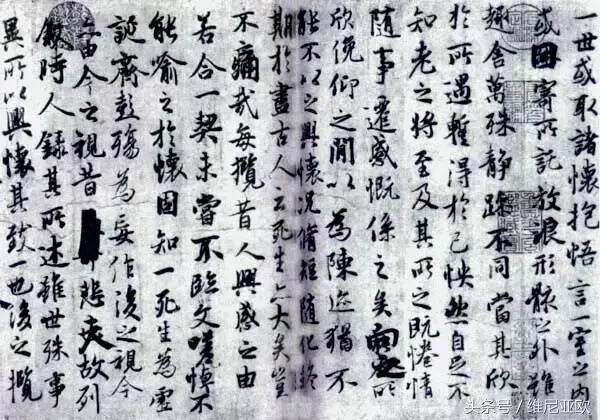 一世或取諸懷抱悟言一室之內
或因寄所託放浪形骸之外雖
趣舍萬殊靜躁不同當其欣
於所遇蹔得於己怏然自足不
知老之將至及其所之既惓情
隨事遷感慨係之矣向之所
欣俛仰之閒以為陳迹猶不
能不以之興懷況脩短隨化終
期於盡古人云死生亦大矣豈
不痛哉每攬昔人興感之由
若合一契未嘗不臨文嗟悼不
能喻之於懷固知一死生為虛
誕齊彭殤為妄作後之視今
亦由今之視昔悲夫故列
敘時人錄其所述雖世殊事
異所以興懷其致一也後之攬
头条号 / 维尼亚欧